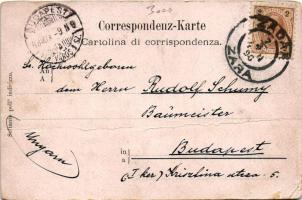 Boos
BUDAPEST
Correspondenz-Karte
Cartolina di corrispondenza.
ZARA
An
A
Sr. Hochwohlgeboren
dem Herrn Rudolf Schumy
Baumeister
in
a
Budapest
(I ker) Krisztina utcza 5.
Ungarn